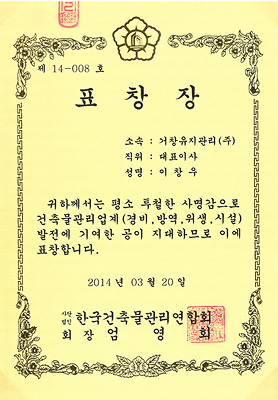 제 14-008 호
표 창 장
소속 : 거창유지관리(주)
직위 : 대표이사
성명 : 이 창 우
귀하께서는 평소 특철한 사명감으로
건축물관리업계(경비,방역,위생,시설)
발전에 기여한 공이 지대하므로 이에
표창합니다.
2014 년 03 월 20 일
사단법인 한국건축물관리연합회
회 장 엄 영 회